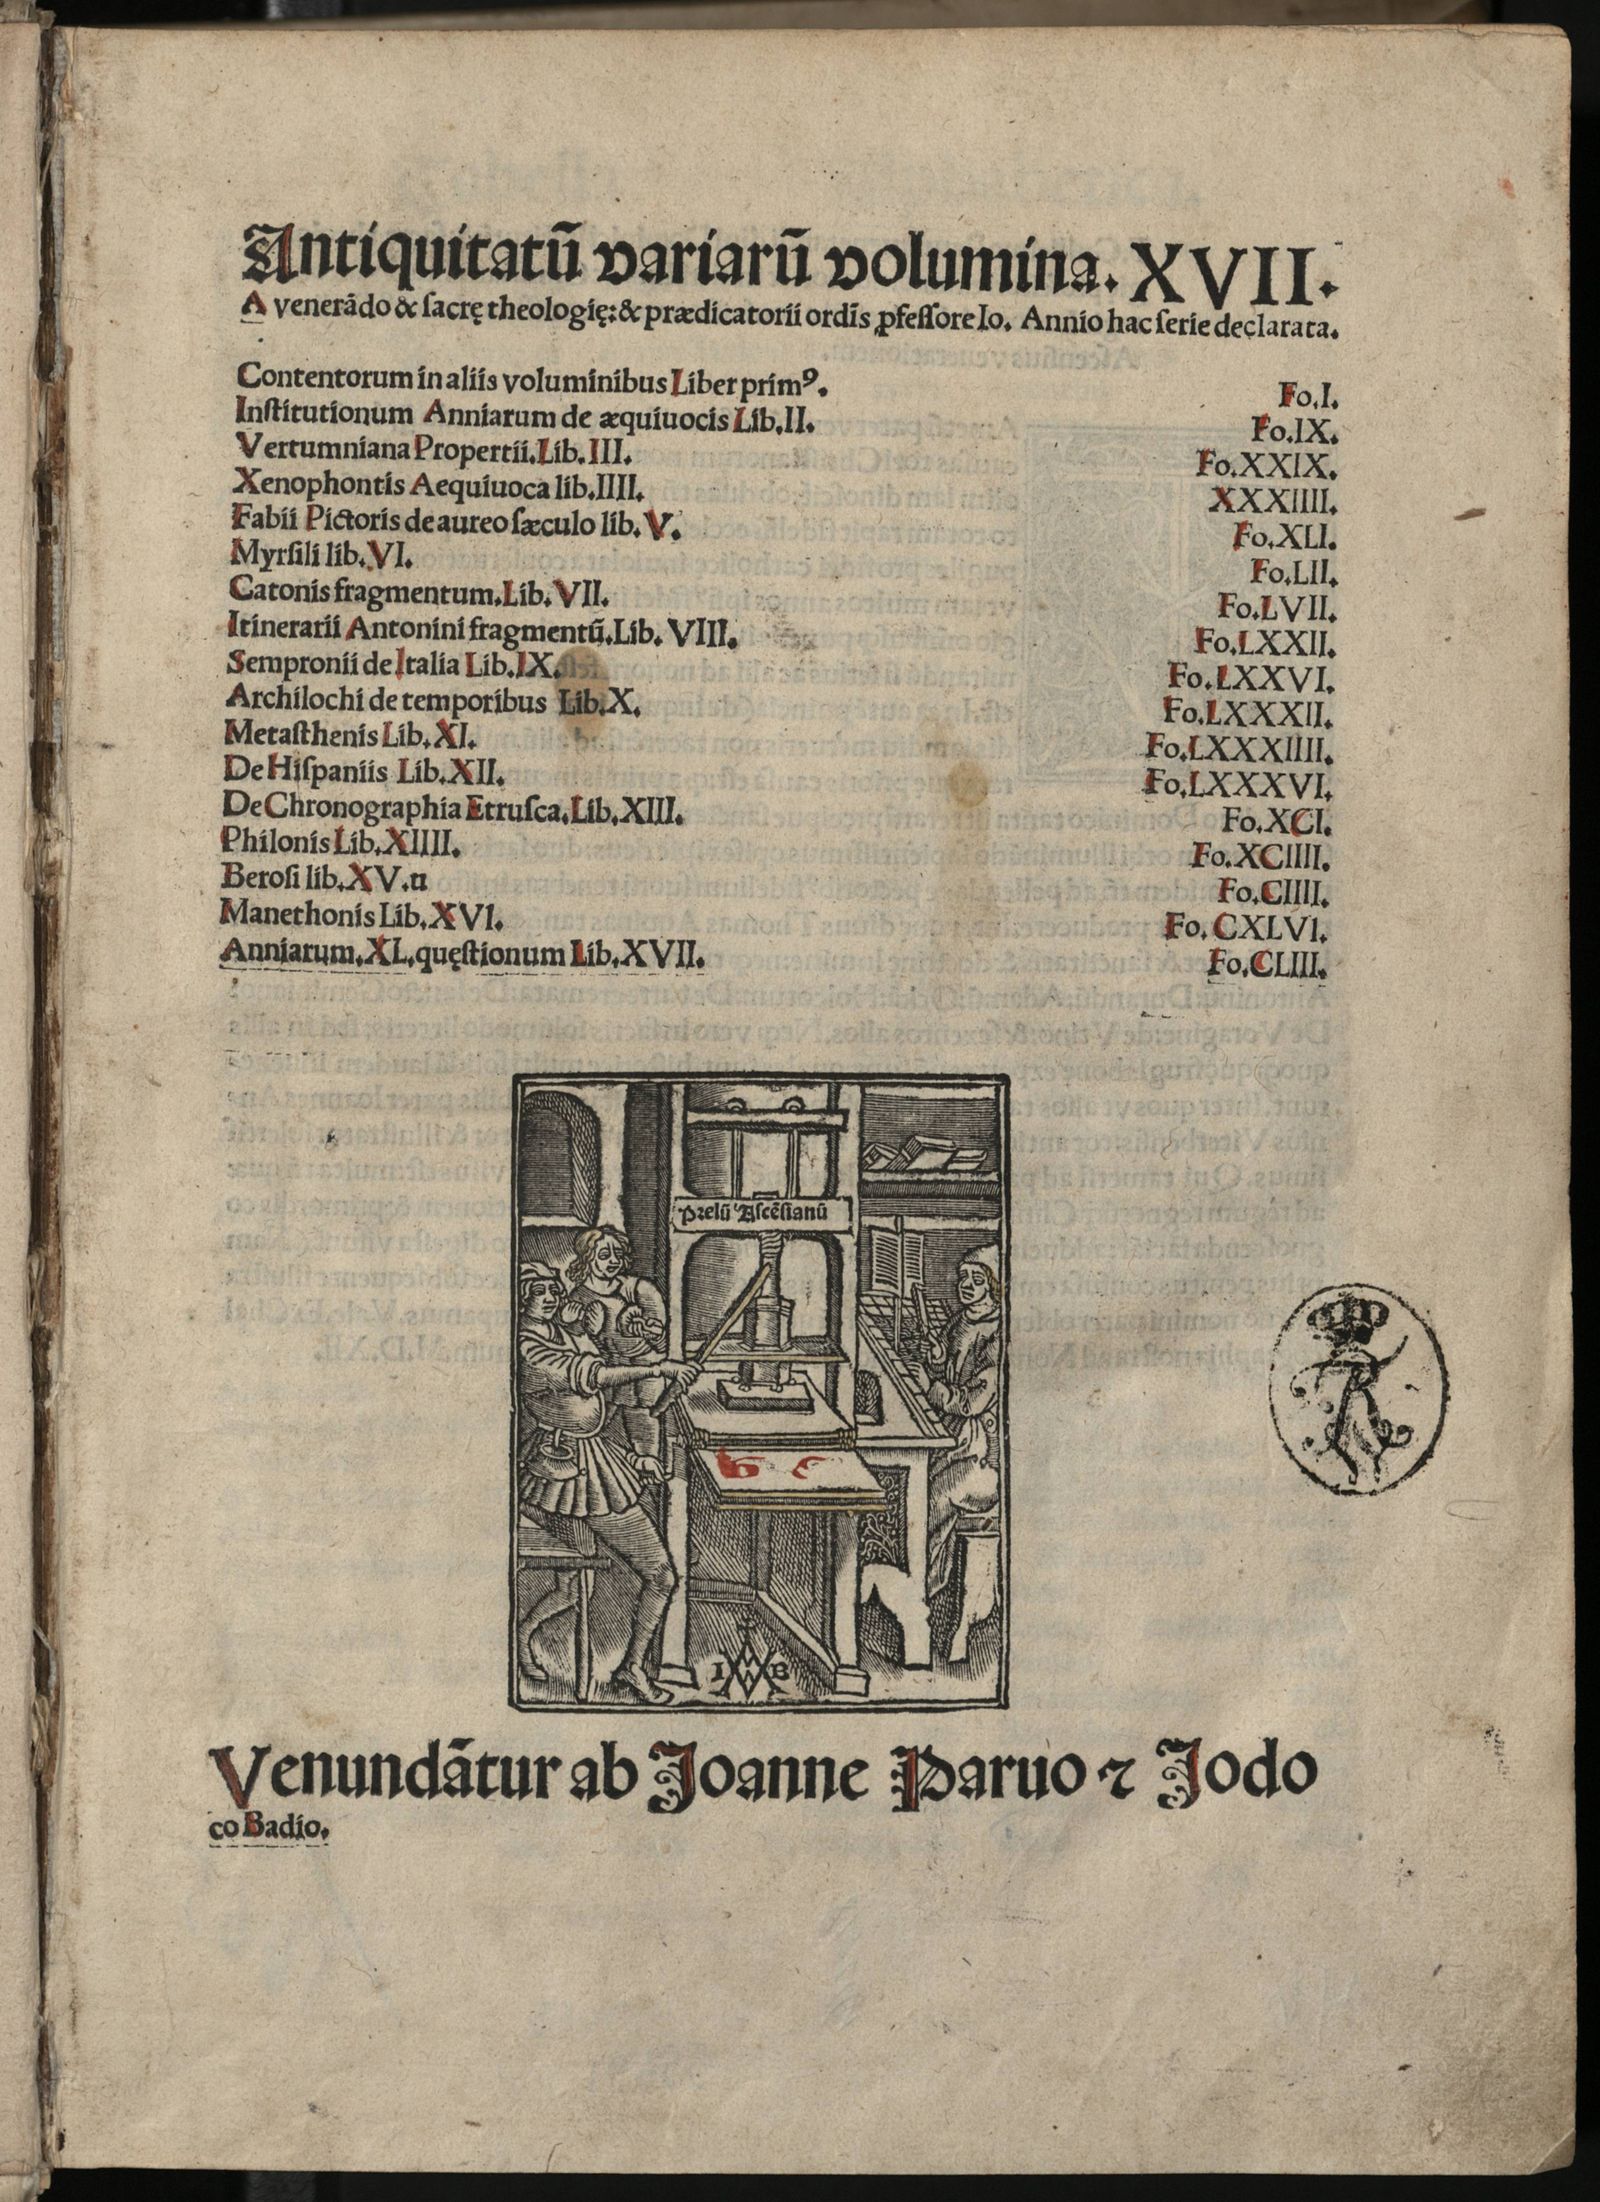 Antiquitatū variarū volumina. XVII.
A venerādo & sacrę theologię: & prædicatorii ordīs ꝓfessore Io. Annio hac serie declarata.
Contentorum in aliis voluminibus Liber primꝰ. Fo.I.
Institutionum Anniarum de æquiuocis Lib.II. Fo.IX.
Vertumniana Propertii.Lib.III. Fo.XXIX.
Xenophontis Aequiuoca lib.IIII. XXXIIII.
Fabii Pictoris de aureo sæculo lib.V. Fo.XLI.
Myrsili lib.VI. Fo.LII.
Catonis fragmentum.Lib.VII. Fo.LVII.
Itinerarii Antonini fragmentū.Lib. VIII. Fo.LXXII.
Sempronii de Italia Lib.IX. Fo.LXXVI.
Archilochi de temporibus Lib.X. Fo.LXXXII.
Metasthenis Lib.XI. Fo.LXXXIIII.
De Hispaniis Lib.XII. Fo.LXXXVI.
De Chronographia Etrusca.Lib.XIII. Fo.XCI.
Philonis Lib.XIIII. Fo.XCIIII.
Berosi lib.XV.u Fo.CIIII.
Manethonis Lib.XVI. Fo.CXLVI.
Anniarum.XL.quęstionum Lib.XVII. Fo.CLIII.
Prelū Ascēsianū
I B
Venundātur ab Joanne Paruo ⁊ Jodo
co Badio.